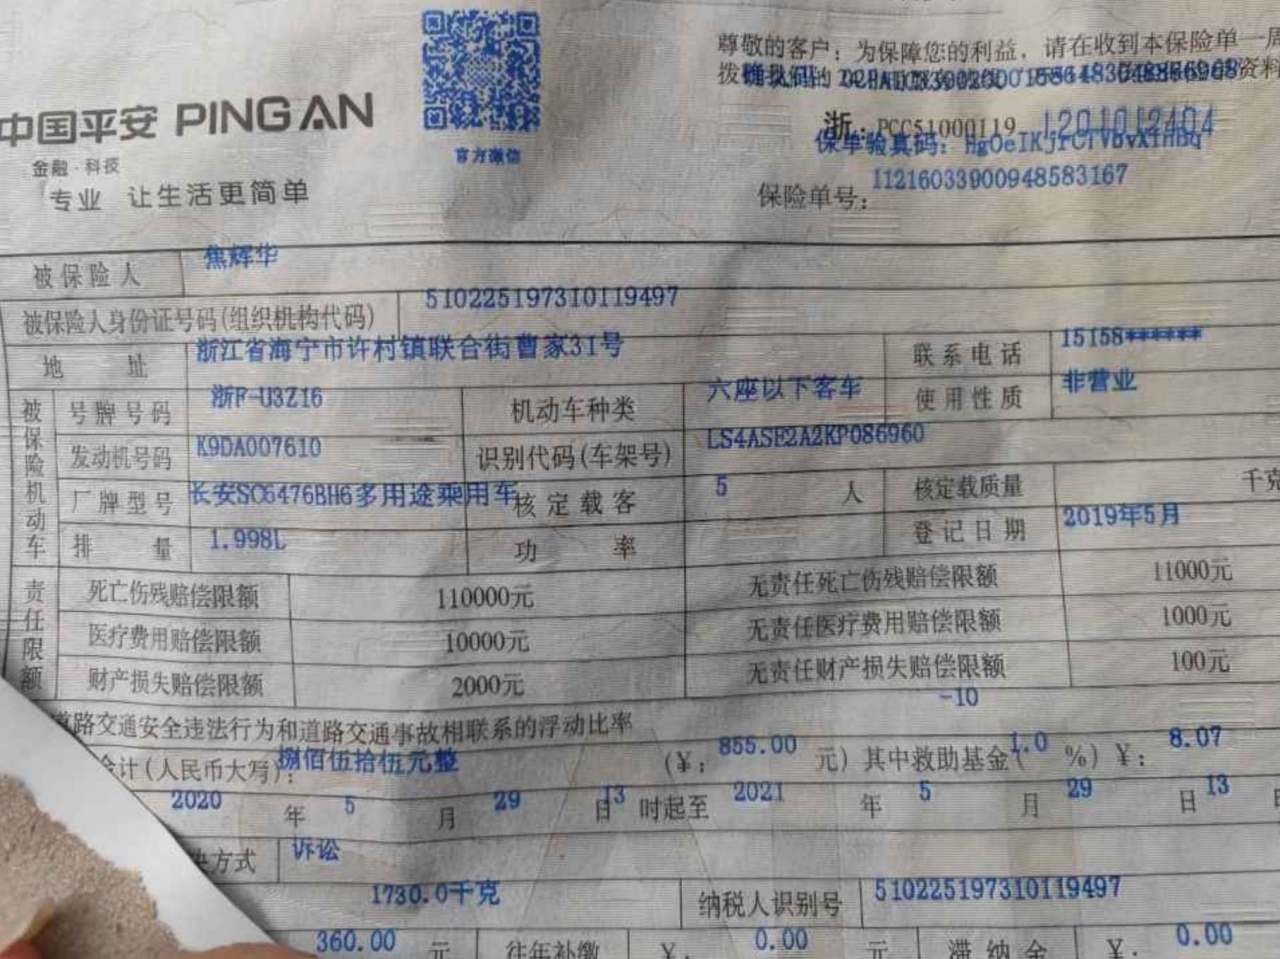 尊敬的客户：为保障您的利益，请在收到本保险单一周
中国平安 PING AN
金融·科技
专业 让生活更简单
官方微信
浙：PCC51000119 1201012404
保单验真码：
保险单号：11216033900948583167
被保险人 焦辉华
被保险人身份证号码(组织机构代码) 510225197310119497
地址 浙江省海宁市许村镇联合街曹家31号 联系电话 15158******
被保险机动车
号牌号码 浙F-U3Z16 机动车种类 六座以下客车 使用性质 非营业
发动机号码 K9DA007610 识别代码(车架号) LS4ASE2A2KP086960
厂牌型号 长安SC6476BH6多用途乘用车 核定载客 5 人 核定载质量 千克
排量 1.998L 功率 登记日期 2019年5月
责任限额
死亡伤残赔偿限额 110000元 无责任死亡伤残赔偿限额 11000元
医疗费用赔偿限额 10000元 无责任医疗费用赔偿限额 1000元
财产损失赔偿限额 2000元 无责任财产损失赔偿限额 100元
道路交通安全违法行为和道路交通事故相联系的浮动比率 -10
合计(人民币大写)：捌佰伍拾伍元整 (￥：855.00 元) 其中救助基金(1.0 %) ￥：8.07
2020 年 5 月 29 日 13 时起至 2021 年 5 月 29 日 13
决方式 诉讼
1730.0千克 纳税人识别号 510225197310119497
360.00 元 往年补缴 ￥：0.00 元 滞纳金 ￥：0.00